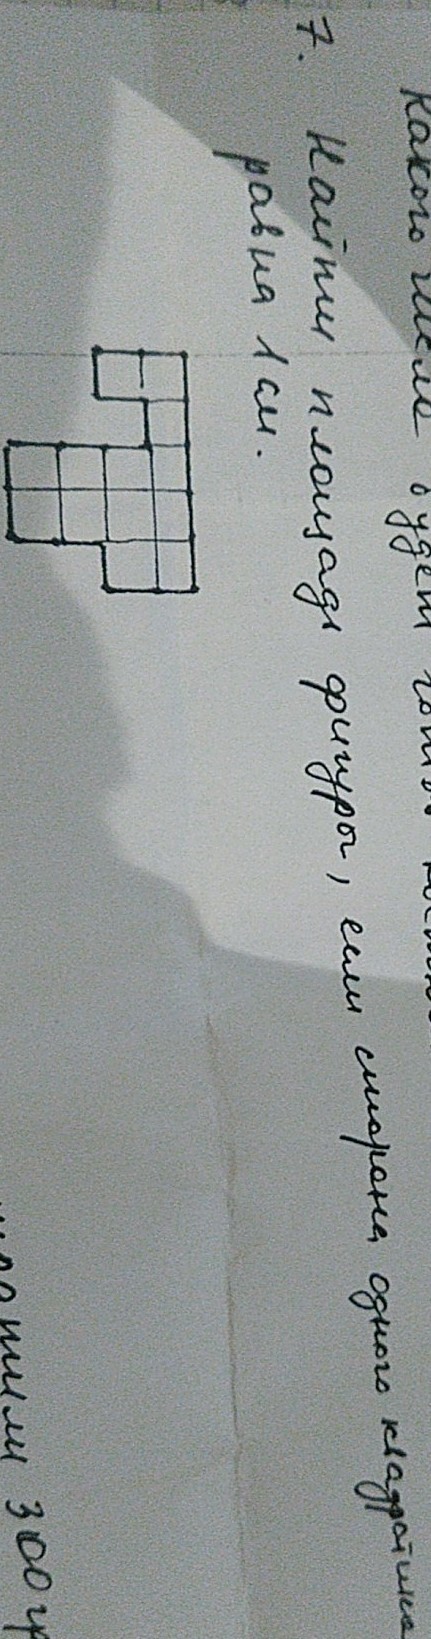 Какого числа будет
7. Найти площадь фигуры, если сторона одного квадратика
равна 1 см.
300 гр